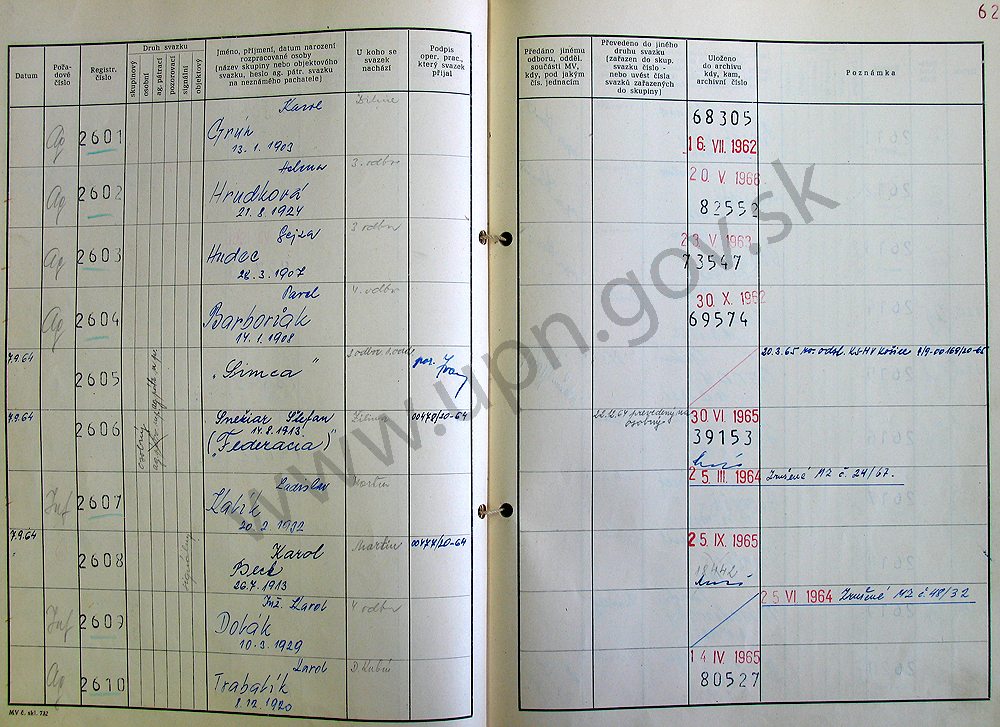 62
Datum
Pořadové číslo
Registr. číslo
Druh svazku
skupinový
osobní
ag. pátrací
pozorovací
signální
objektový
Jméno, příjmení, datum narození
rozpracované osoby
(název skupiny nebo objektového
svazku, heslo ag. pátr. svazku
na neznámého pachatele)
U koho se
svazek
nachází
Podpis
oper. prac.,
který svazek
přijal
Předáno jinému
odboru, odděl.
součásti MV,
kdy, pod jakým
čís. jednacím
Převedeno do jiného
druhu svazku
(zařazen do skup.
svazku číslo -
nebo uvést čísla
svazků zařazených
do skupiny)
Uloženo
do archivu
kdy, kam,
archivní číslo
Poznámka
Karol
Ag 2601 Gruh
13. 1. 1903
68305
16. VII. 1962
Helena 3. odbor
Ag 2602 Hrudková
21. 8. 1924
20. V. 1966
82552
Gejza 3 odbor
Ag 2603 Hudec
28. 3. 1907
23 V 1963
73547
Pavol 4. odbor
Ag 2604 Barboriak
14. 1. 1908
30. X. 1962
69574
7.9.64
2605 „Simca“
7.9.64 Štefan Žilina 00478/20-64
2606 14. 8. 1913
(„Federácia“)
osobný
22.12.64 prevedený na
osobný
30. VI 1965
39153
Ladislav Martin
Inf 2607
20. 2. 1932
25. III. 1964 Zrušené M2 č. 24/67.
7.9.64 Karol Martin 00477/20-64
2608 Beck
26.7. 1913
signálny
25. IX. 1965
18442
Inž. Karol 4 odbor
Inf 2609 Dobák
10. 3. 1929
25 VI 1964 Zrušené M2 č. 48/32
Karol D. Kubín
Ag 2610 Trabalík
8. 12. 1920
14 IV. 1965
80527
MV č. skl. 732
www.upn.gov.sk